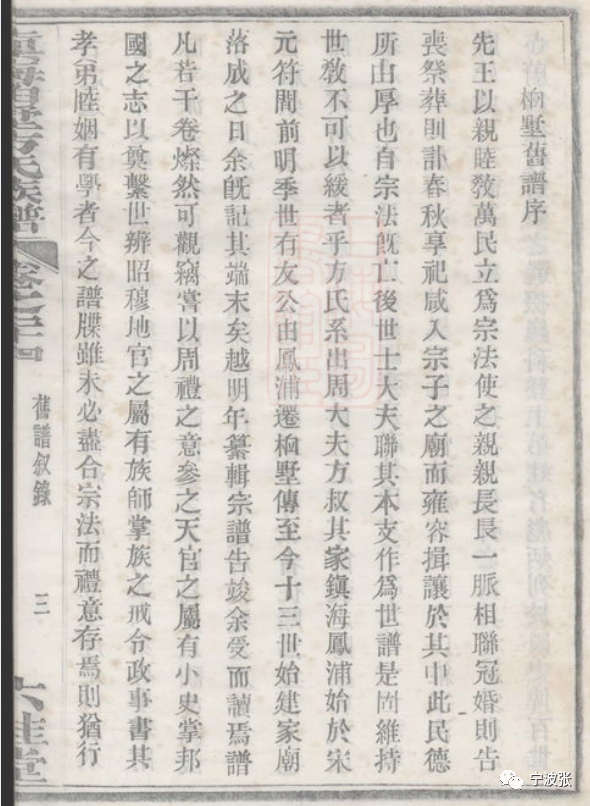 桕墅舊譜序
先王以親睦敎萬民立爲宗法使之親親長長一脈相聯冠婚則告
喪祭葬則訃春秋享祀咸入宗子之廟而雍容揖讓於其中此民德
所由厚也自宗法旣亡後世士大夫聯其本支作爲世譜是固維持
世敎不可以緩者乎方氏系出周大夫方叔其家鎭海鳳浦始於宋
元符間前明季世有友公由鳳浦遷桕墅傳至今十三世始建家廟
落成之日余旣記其端末矣越明年纂輯宗譜告竣余受而讀焉譜
凡若干卷燦然可觀竊嘗以周禮之意參之天官之屬有小史掌邦
國之志以奠繫世辨昭穆地官之屬有族師掌族之戒令政事書其
孝弟睦姻有學者今之譜牒雖未必盡合宗法而禮意存焉則猶行
舊譜叙錄
三
六桂堂
宁波张